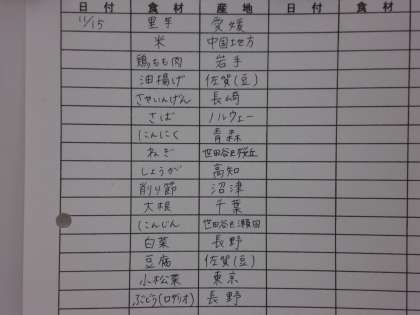 日付 食材 産地 日付 食材 産地
11/15 里芋 愛媛
米 中国地方
鶏もも肉 岩手
油揚げ 佐賀(豆)
さやいんげん 長崎
さば ノルウェー
にんにく 青森
ねぎ 世田谷区桜丘
しょうが 高知
削り節 沼津
大根 千葉
にんじん 世田谷区瀬田
白菜 長野
豆腐 佐賀(豆)
小松菜 東京
ぶどう(ロザリオ) 長野